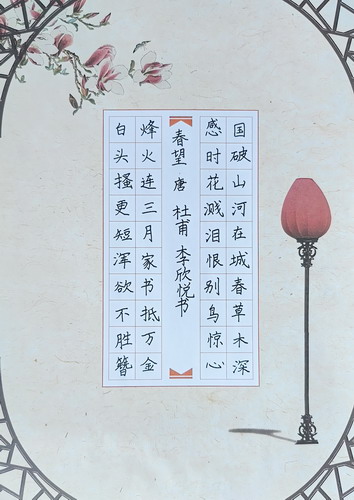 国破山河在城春草木深
感时花溅泪恨别鸟惊心
春望 唐 杜甫 李欣悦书
烽火连三月家书抵万金
白头搔更短浑欲不胜簪